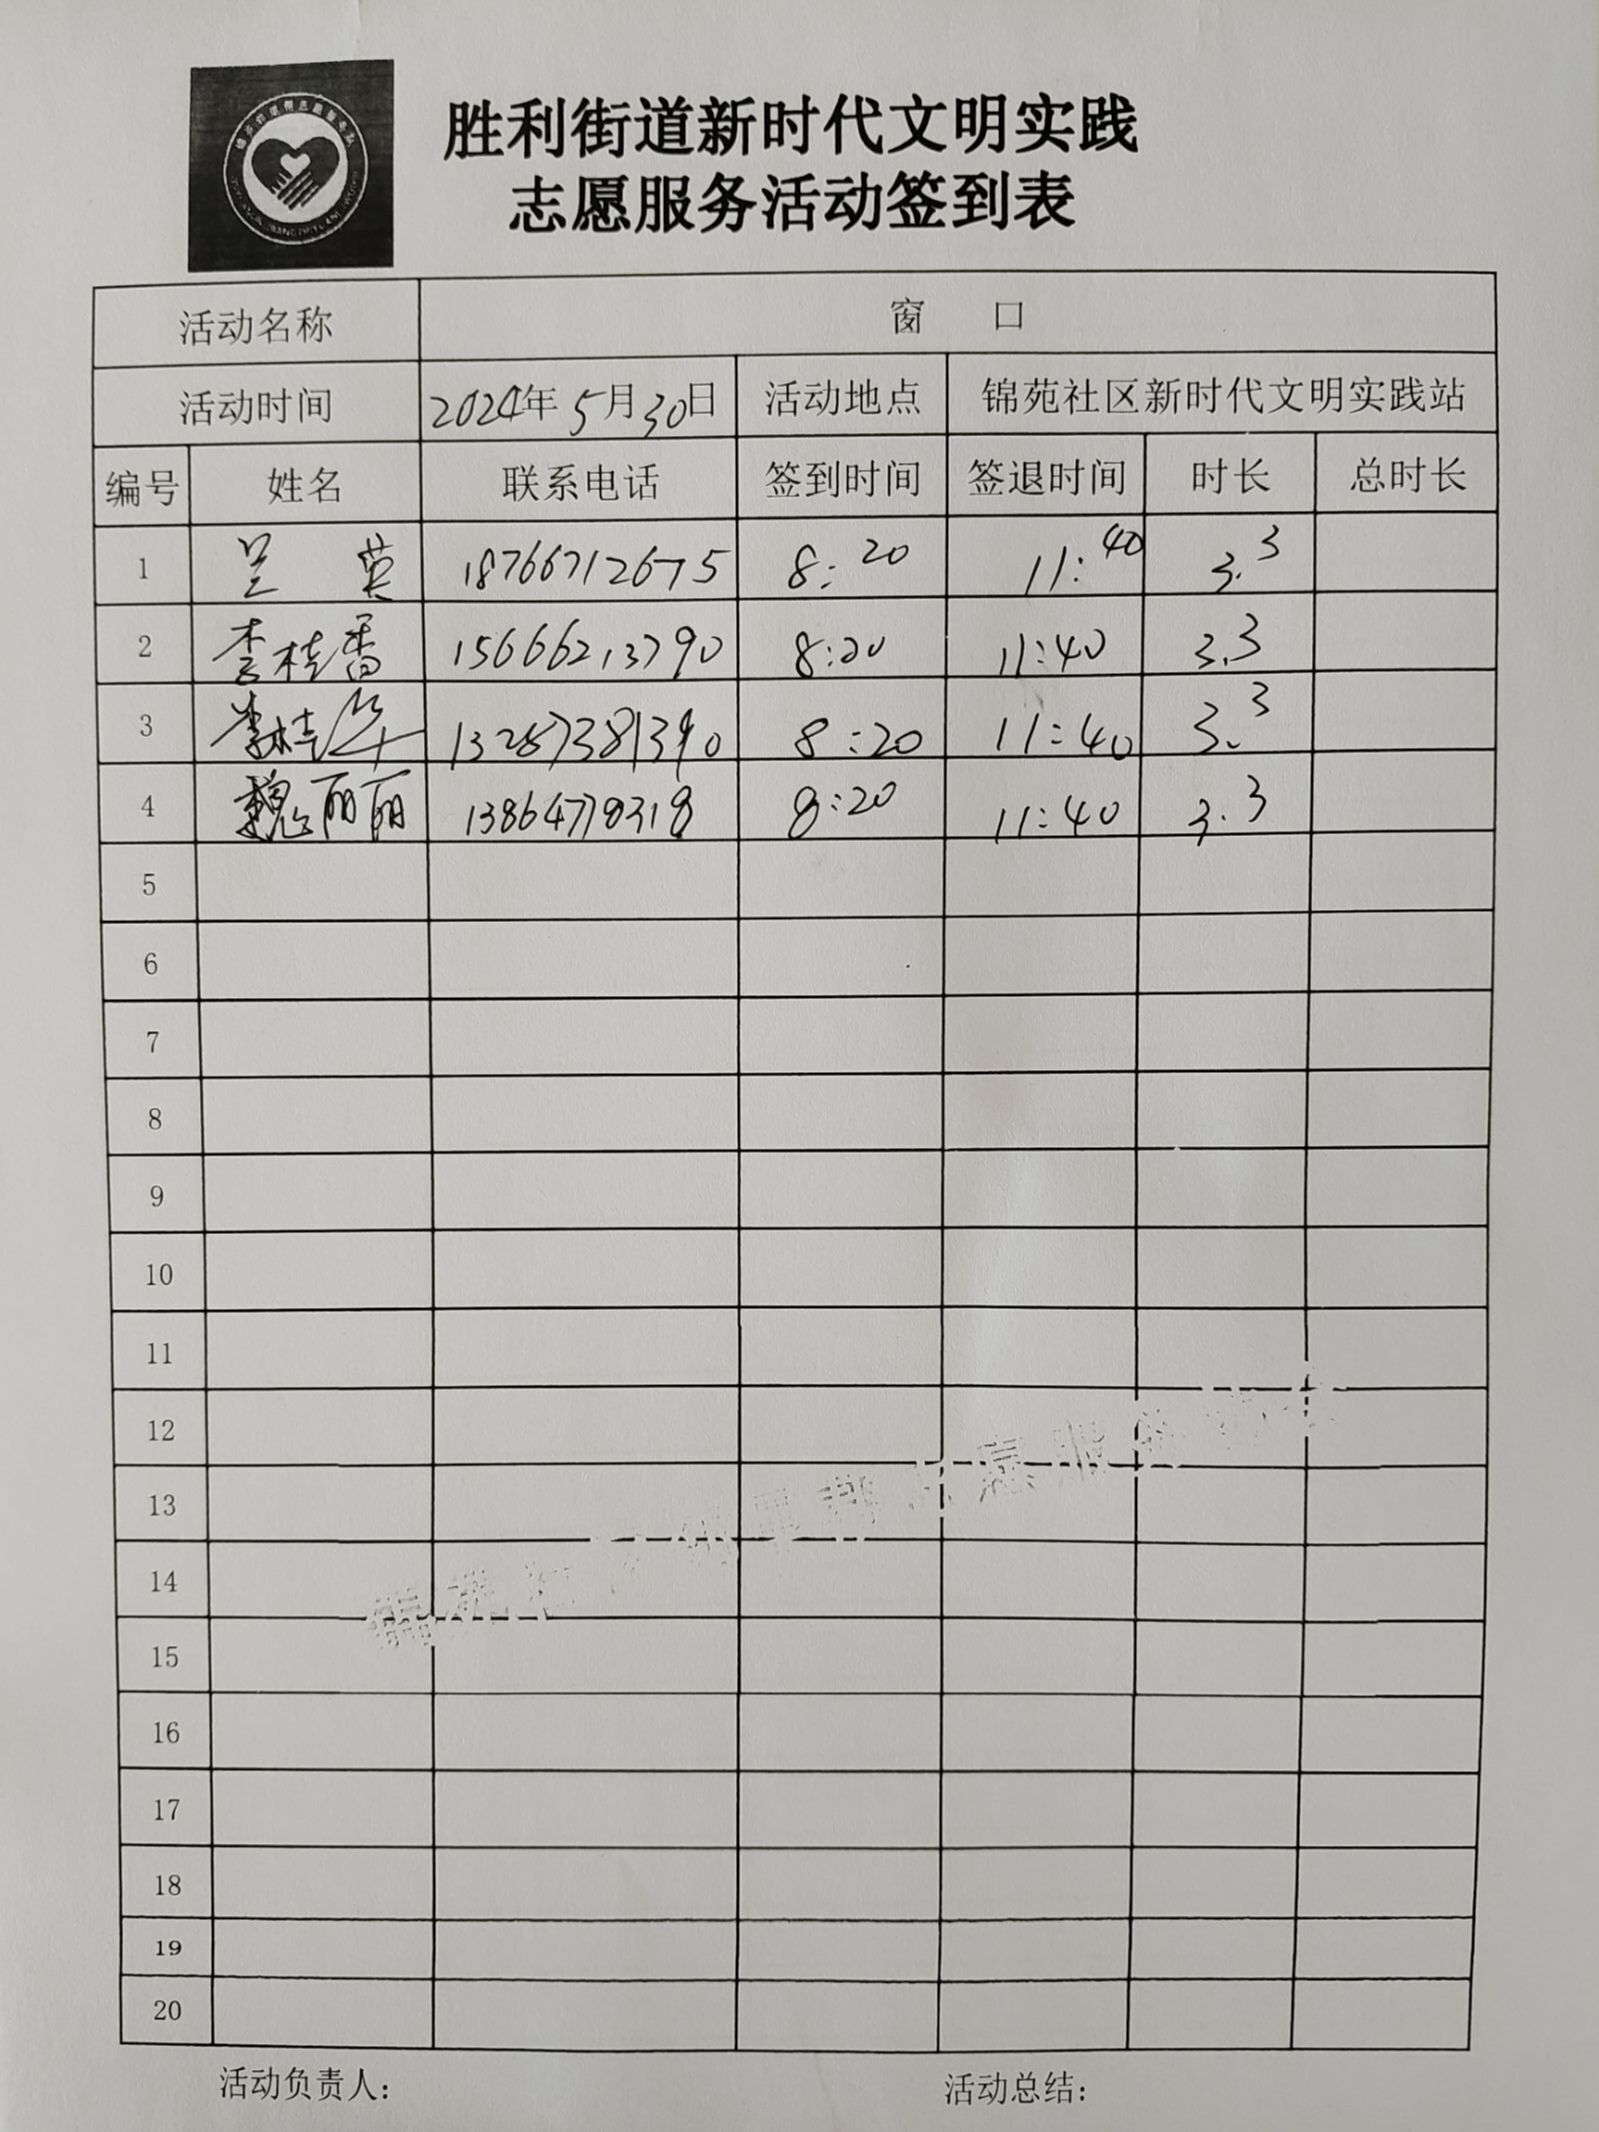 胜利街道新时代文明实践
志愿服务活动签到表
活动名称 窗 口
活动时间 2024年5月30日 活动地点 锦苑社区新时代文明实践站
编号 姓名 联系电话 签到时间 签退时间 时长 总时长
1 兰 英 18766712675 8:20 11:40 3.3
2 李桂香 15666213790 8:20 11:40 3.3
3 李桂华 13287381390 8:20 11:40 3.3
4 魏丽丽 13864778318 8:20 11:40 3.3
5
6
7
8
9
10
11
12
13
14
15
16
17
18
19
20
活动负责人: 活动总结: